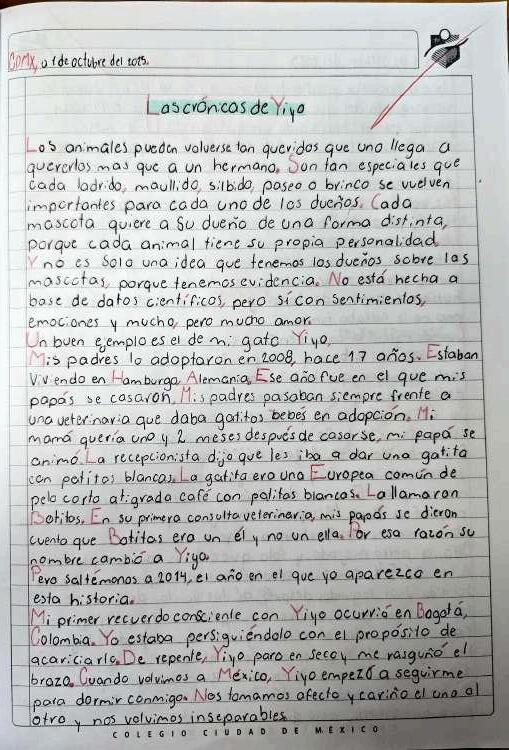 CDMX, a 1 de octubre del 2025.
Las crónicas de Yiyo
Los animales pueden volverse tan queridos que uno llega a
quererlos mas que a un hermano. Son tan especiales que
cada ladrido, maullido, silbido, paseo o brinco se vuelven
importantes para cada uno de los dueños. Cada
mascota quiere a su dueño de una forma distinta,
porque cada animal tiene su propia personalidad.
Y no es solo una idea que tenemos los dueños sobre las
mascotas, porque tenemos evidencia. No está hecha a
base de datos científicos, pero sí con sentimientos,
emociones y mucho, pero mucho amor.
Un buen ejemplo es el de mi gato Yiyo.
Mis padres lo adoptaron en 2008, hace 17 años. Estaban
Viviendo en Hamburgo, Alemania. Ese año fue en el que mis
papás se casaron. Mis padres pasaban siempre frente a
una veterinaria que daba gatitos bebés en adopción. Mi
mamá quería uno y 2 meses después de casarse, mi papá se
animó. La recepcionista dijo que les iba a dar una gatita
con patitas blancas. La gatita era una Europea común de
pelo corto atigrada café con patitas blancas. La llamaron
Botitas. En su primera consulta veterinaria, mis papás se dieron
cuenta que Botitas era un él y no un ella. Por esa razón su
nombre cambió a Yiyo.
Pero saltémonos a 2014, el año en el que yo aparezco en
esta historia.
Mi primer recuerdo consciente con Yiyo ocurrió en Bogotá,
Colombia. Yo estaba persiguiéndolo con el propósito de
acariciarlo. De repente, Yiyo paro en seco y me rasguñó el
brazo. Cuando volvimos a México, Yiyo empezó a seguirme
para dormir conmigo. Nos tomamos afecto y cariño el uno al
otro y nos volvimos inseparables.
COLEGIO CIUDAD DE MÉXICO